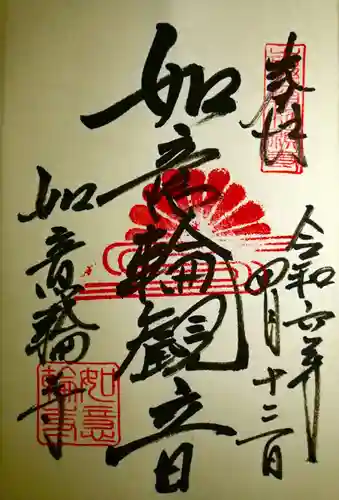 奉拝
令和六年
四月十三日
如意輪観音
如意輪寺
如意輪寺